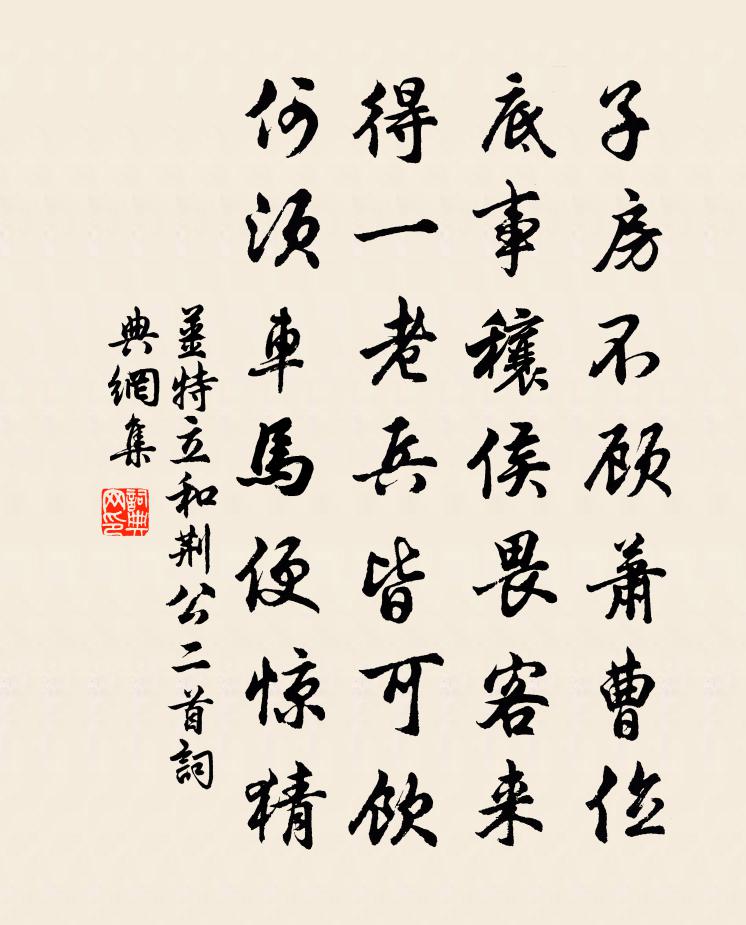 子房不顾蕭曹俭
底事穰侯畏客来
得一老兵皆可饮
何须車馬便惊猜
薑特立和荆公二首詞
典網集
詞典
网印